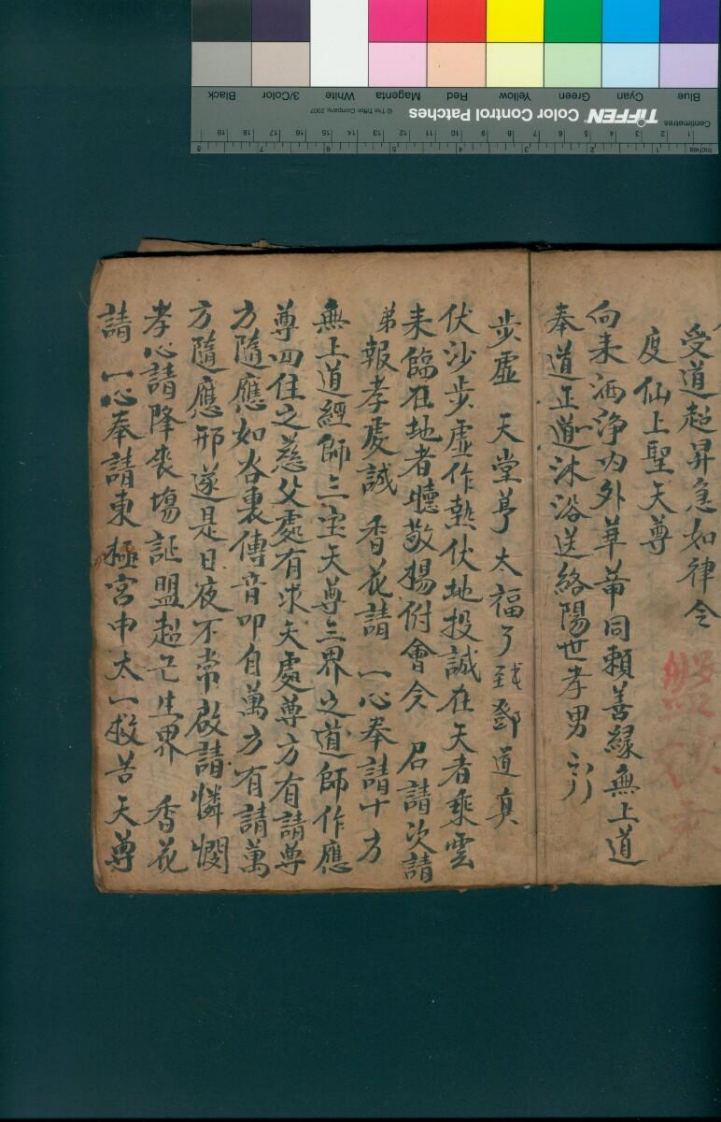 受道超昇急如律令
度仙上聖天尊
向来洒净内外羊萆同賴善緣無上道
奉道正道沐浴送絡陽世孝男
步虛 天堂享太福了 鄧道真
伏沙步虛作熱伏地投誠在天者乘雲
来臨在地者聴敬揚附會令 召請次請
弟報孝虔誠 香花請 一心奉請十方
無上道經師三宝天尊三界之道師作應
尊四住之慈父處有求天處尊方有請尊
方隨應如谷裏傳音叩自萬方有請萬
方隨應邢遂是日夜不常啟請憐憫
孝心請降喪塲証盟超亡生界 香花
請 一心奉請東極宮中太一救苦天尊
Blue Cyan Green Yellow Red Magenta White 3/Color Black
TIFFEN Color Control Patches
© The Tiffen Company, 2007
Centimetres
1 2 3 4 5 6 7 8 9 10 11 12 13 14 15 16 17 18 19
Inches
1 2 3 4 5 6 7 8